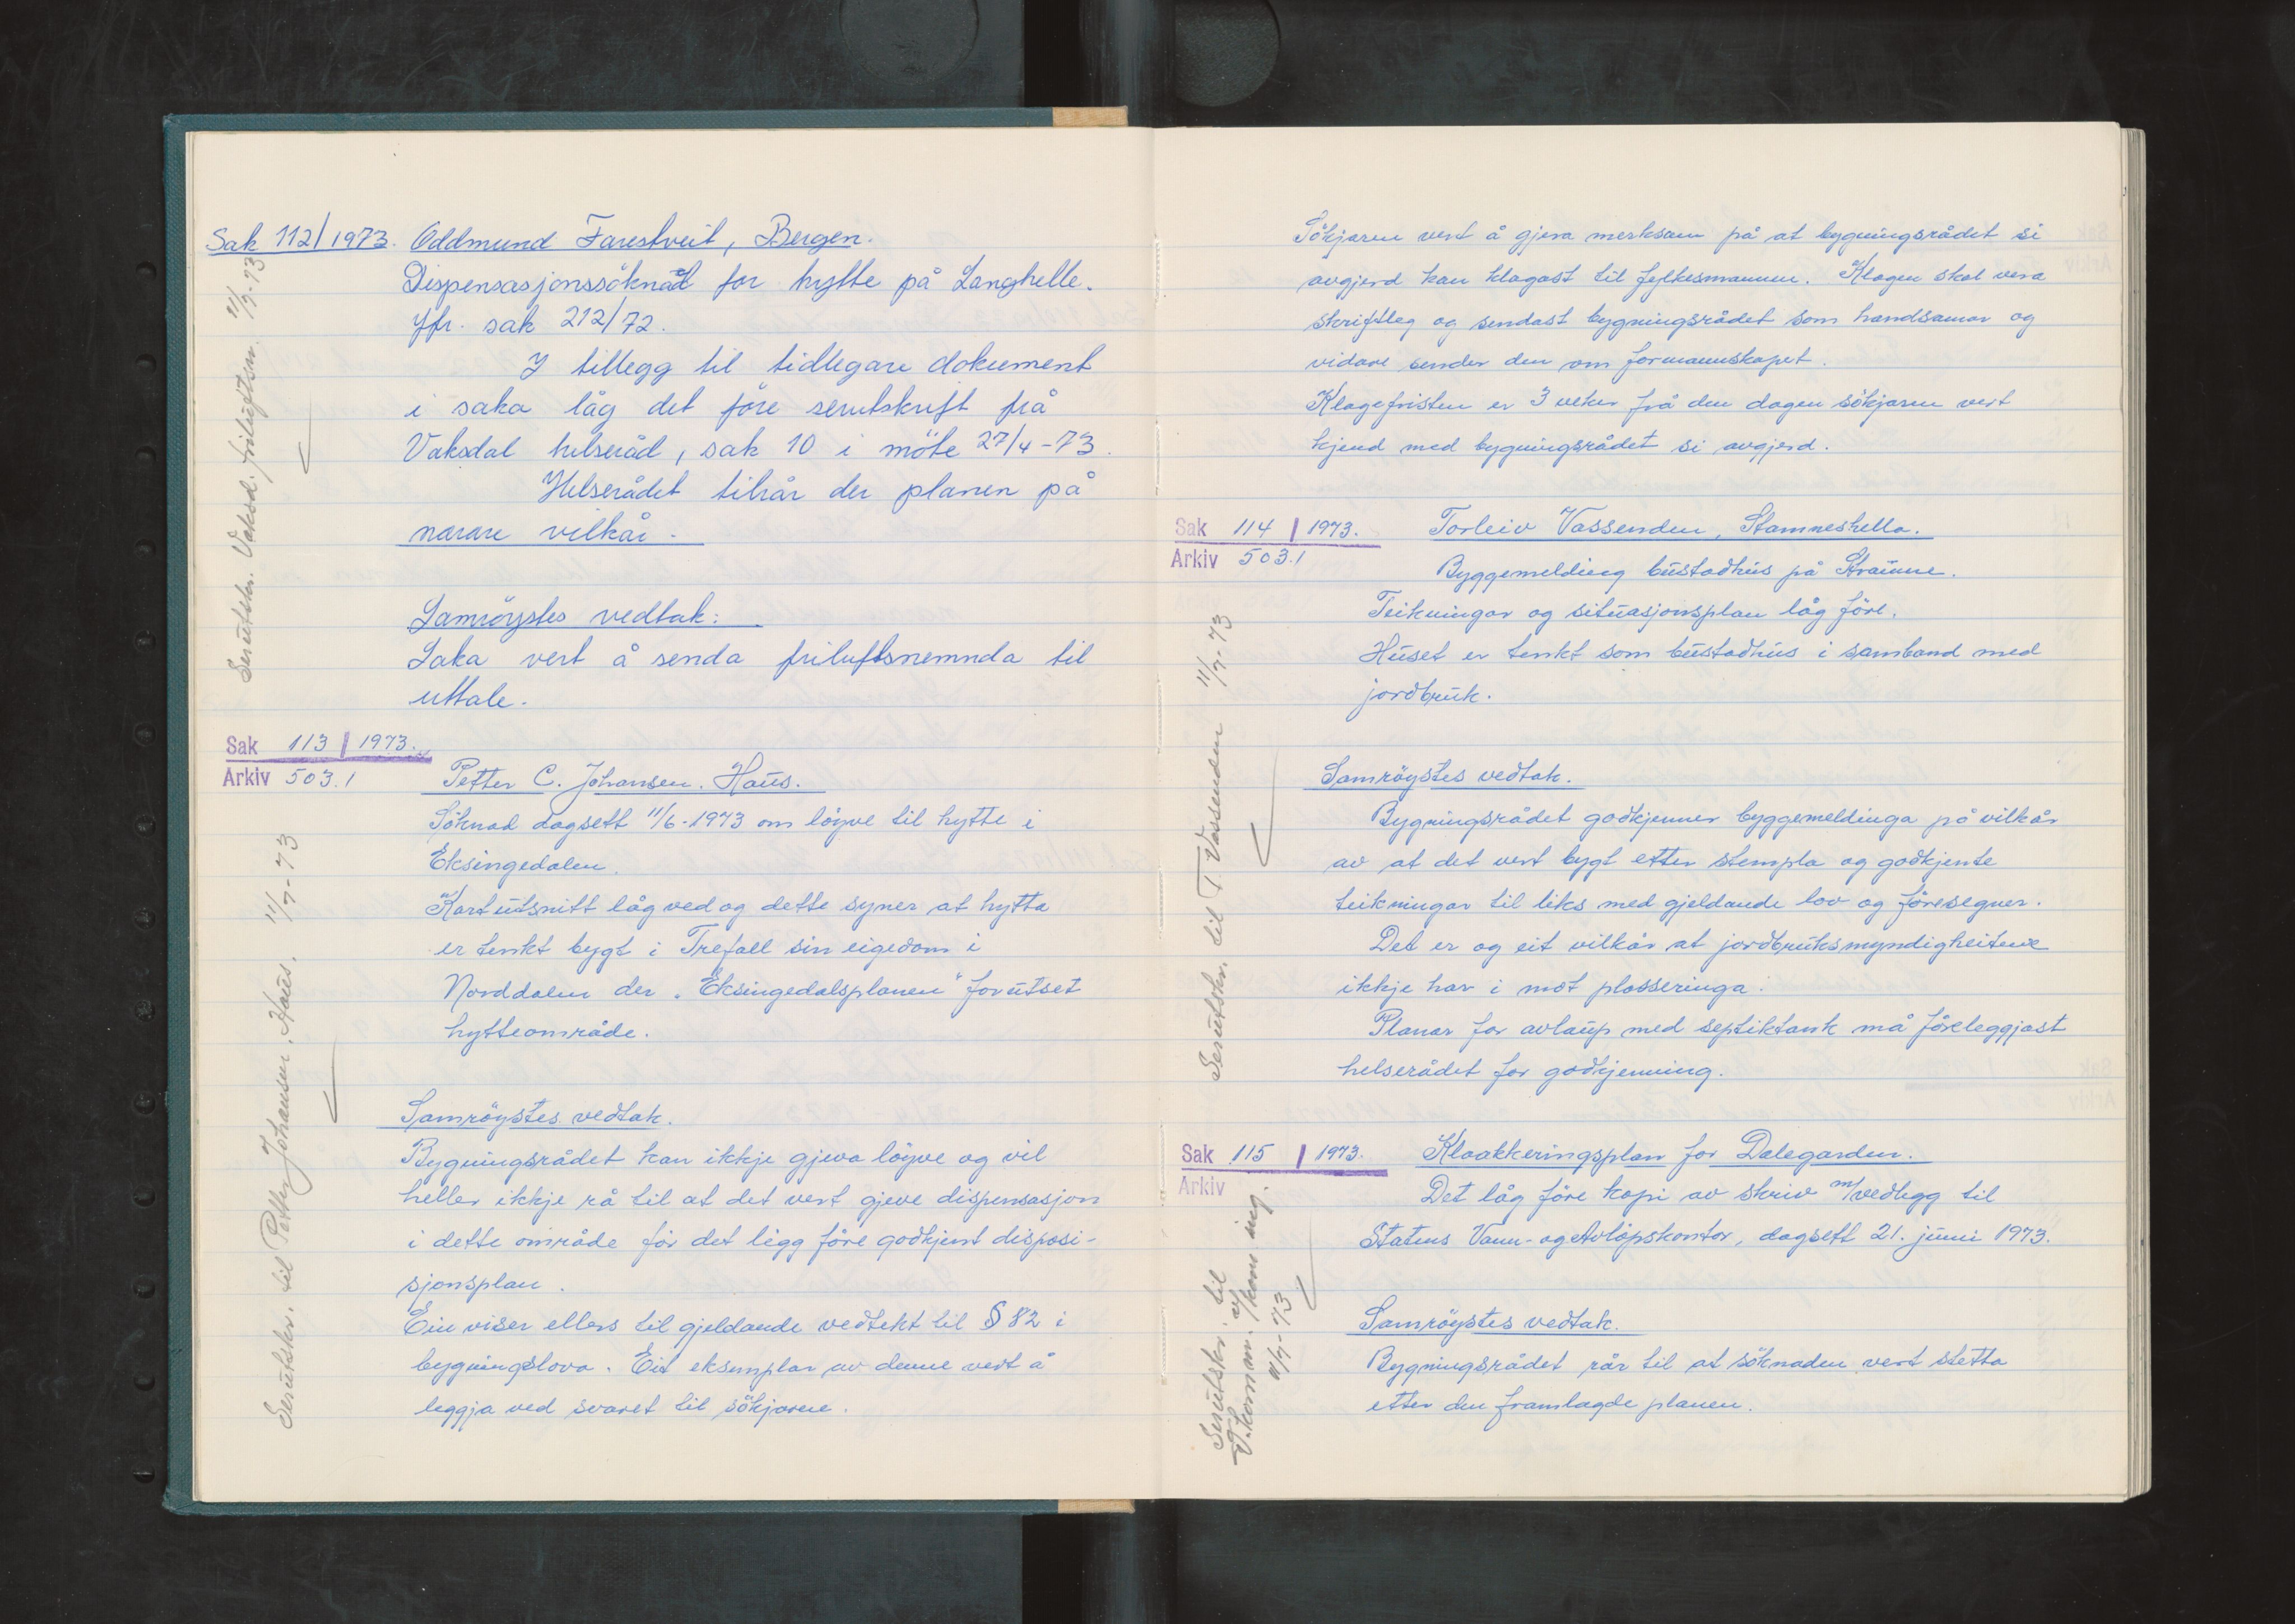 Sak 112/1973. Oddmund Farestveit, Bergen.
Dispensasjonssöknad for hytte på Langhelle.
Jfr. sak 212/72.
I tillegg til tidlegare dokument
i saka låg det före serutskrift frå
Vaksdal helseråd, sak 10 i möte 27/4-73.
Helserådet tilrår der planen på
nærare vilkår.
Samröystes vedtak:
Saka vert å senda friluftsnemnda til
uttale.
Serutskr. Vaksd. friluftsn. 11/7-73
Sak 113/1973.
Arkiv 503.1
Petter C. Johansen. Haus.
Söknad dagsett 11/6-1973 om löyve til hytte i
Eksingedalen.
Kartutsnitt låg ved og dette syner at hytta
er tenkt bygt i Trefall sin eigedom i
Norddalen der "Eksingedalsplanen" forutset
hytteområde.
Samröystes vedtak.
Bygningsrådet kan ikkje gjeva löyve og vil
heller ikkje rå til at det vert gjeve dispensasjon
i dette område för det ligg före godkjent disposi-
sjonsplan.
Ein viser ellers til gjeldande vedtekt til § 82 i
bygningslova. Eit eksemplar av denne vert å
leggja ved svaret til sökjaren.
Serutskr. til Petter Johansen, Haus. 11/7-73
Sökjaren vert å gjera merksam på at bygningsrådet si
avgjerd kan klagast til fylkesmannen. Klagen skal vera
skriftleg og sendast bygningsrådet som handsamar og
vidare sender den om formannskapet.
Klagefristen er 3 veker frå den dagen sökjaren vert
kjend med bygningsrådet si avgjerd.
Sak 114/1973.
Arkiv 503.1
Torleiv Vassenden, Stamneshella.
Byggemelding bustadhus på Straume.
Teikningar og situasjonsplan låg före.
Huset er tenkt som bustadhus i samband med
jordbruk.
Samröystes vedtak.
Bygningsrådet godkjenner byggemeldinga på vilkår
av at det vert bygt etter stempla og godkjente
teikningar til liks med gjeldande lov og föresegner.
Det er og eit vilkår at jordbruksmyndigheitene
ikkje har i mot plasseringa.
Planar for avlaup med septiktank må föreleggjast
helserådet for godkjenning.
Serutskr. til T. Vassenden 11/7-73
Sak 115/1973.
Arkiv
Kloakkeringsplan for Dalegarden.
Det låg före kopi av skriv m/vedlegg til
Statens Vann- og Avlöpskontor, dagsett 21. juni 1973.
Samröystes vedtak.
Bygningsrådet rår til at söknaden vert stetta
etter den framlagde planen.
Serutskr. til
V. komm. v/kom ing.
11/7-73